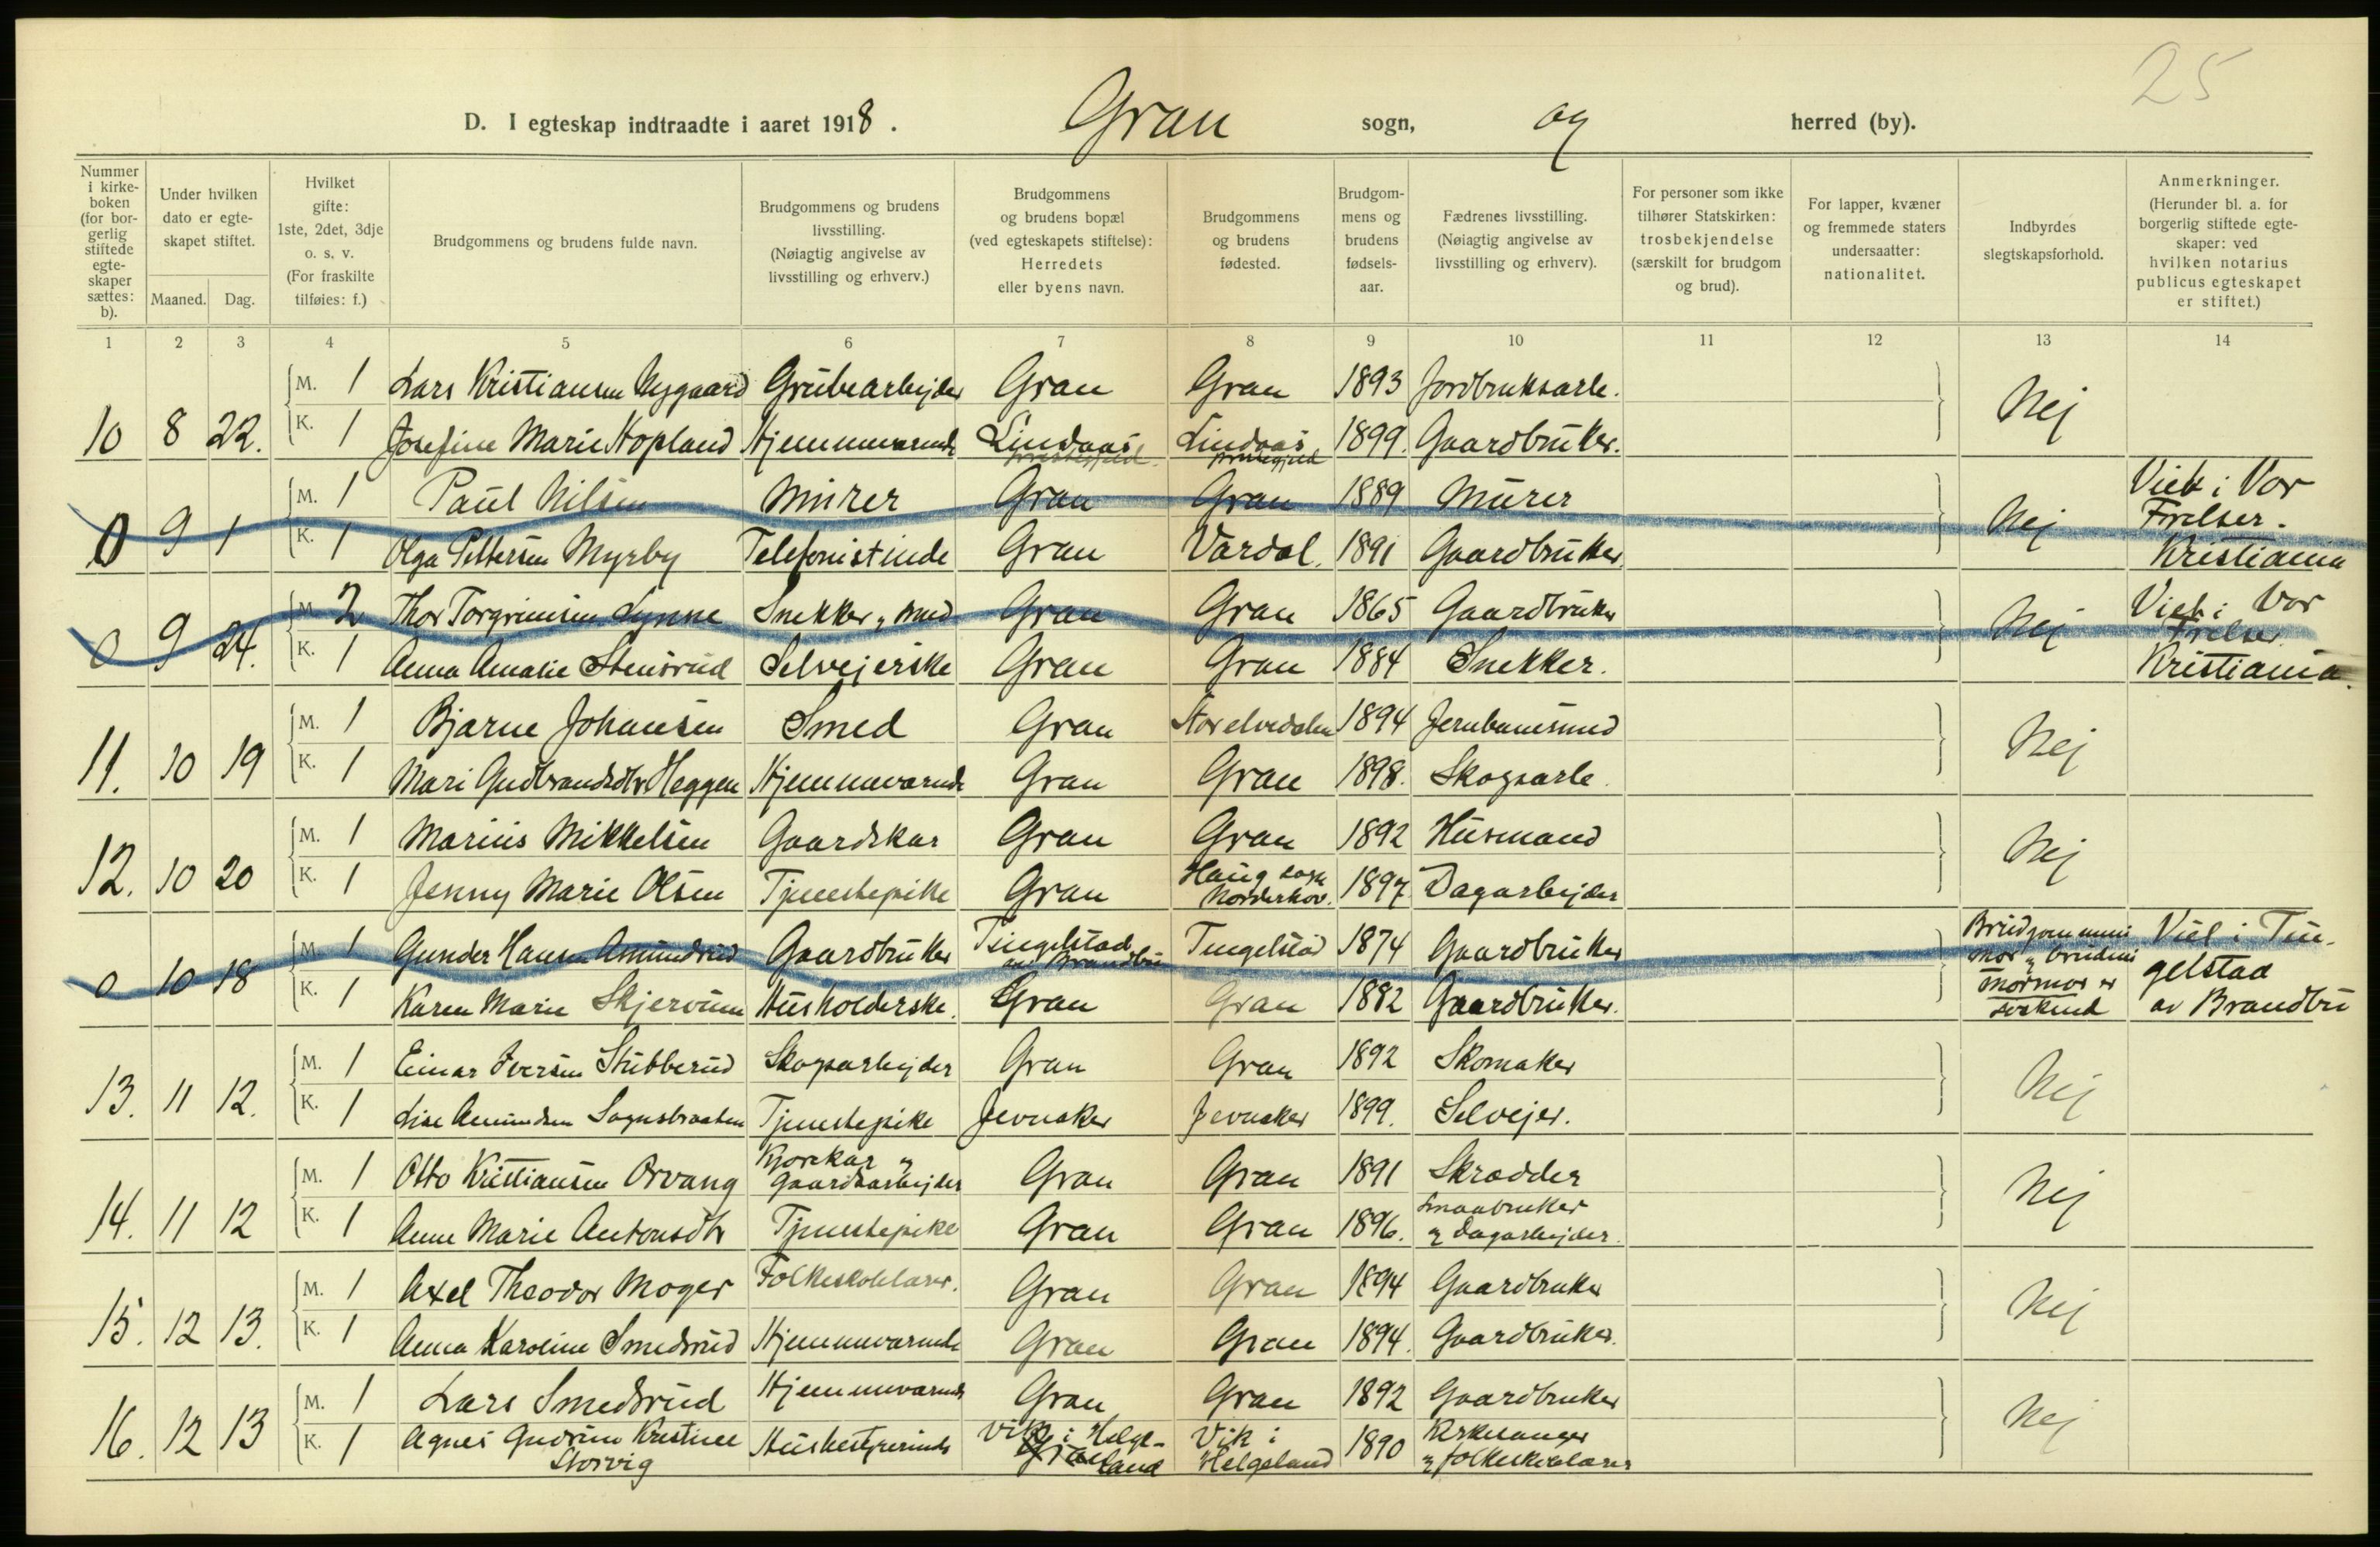 25
D. I egteskap indtraadte i aaret 1918. Gran sogn, og herred (by).
Nummer i kirke-boken (for bor-gerlig stiftede egte-skaper sættes: b).
Under hvilken dato er egte-skapet stiftet.
Maaned. Dag.
Hvilket gifte: 1ste, 2det, 3dje o. s. v. (For fraskilte tilføies: f.)
Brudgommens og brudens fulde navn.
Brudgommens og brudens livsstilling. (Nøiagtig angivelse av livsstilling og erhverv.)
Brudgommens og brudens bopæl (ved egteskapets stiftelse): Herredets eller byens navn.
Brudgommens og brudens fødested.
Brudgom-mens og brudens fødsels-aar.
Fædrenes livsstilling. (Nøiagtig angivelse av livsstilling og erhverv).
For personer som ikke tilhører Statskirken: trosbekjendelse (særskilt for brudgom og brud).
For lapper, kvæner og fremmede staters undersaatter: nationalitet.
Indbyrdes slegtskapsforhold.
Anmerkninger. (Herunder bl. a. for borgerlig stiftede egte-skaper: ved hvilken notarius publicus egteskapet er stiftet.)
1 2 3 4 5 6 7 8 9 10 11 12 13 14
M. 1 Lars Kristiansen Nygaard Grubearbejder Gran Gran 1893 Jordbruksarb. Nej
10 8 22. K. 1 Josefine Marie Hopland Hjemmeværende Lindaas Lindaas 1899. Gaardbruker.
M. 1 Paul Nilsen Murer Gran Gran 1889 Murer Nej Viet i Vor
0 9 1 K. 1 Olga Pettersen Myrby Telefonistinde Gran Vardal. 1891 Gaardbruker. Frelser.
Kristiania
M. 2 Thor Torgrimsen Lynne Snekker Gran Gran 1865 Gaardbruker Nej Viet i Vor
0 9 24. K. 1 Anna Amalie Stensrud Selvejerske Gran Gran 1884 Snekker. Frelser
Kristiania.
M. 1 Bjarne Johansen Smed Gran Storelvedalen 1894 Jernbanesmed Nej
11. 10 19 K. 1 Mari Gudbrandsdtr Heggen Hjemmeværende Gran Gran 1898. Skogsarb.
M. 1 Marius Mikkelsen Gaardskar Gran Gran 1892 Husmand Nej
12. 10 20 K. 1 Jenny Marie Olsen Tjenestepike Gran Haug sogn Norderhov. 1897 Dagarbejder
M. 1 Gunder Hansen Amundrud Gaardbruker Tingelstad av Brandbu Tingelstad 1874 Gaardbruker Brudgommens mor og brudens mormor er søskend Viet i Tin-
0 10 18 K. 1 Karen Marie Skjervum Husholderske. Gran Gran 1882 Gaardbruker. gelstad
av Brandbu
M. 1 Einar Iversen Stubberud Skogsarbejder Gran Gran 1892 Skomaker Nej
13. 11 12. K. 1 Lise Amundsen Sognsbraaten Tjenestepike Jevnaker Jevnaker 1899. Selvejer.
M. 1 Otto Kristiansen Orvang Kjørekar og Gaardsarbejder Gran Gran 1891 Skrædder Nej
14. 11 12 K. 1 Anne Marie Antonsdtr Tjenestepike Gran Gran 1896. Smaabruker og Dagarbejder.
M. 1 Axel Theodor Moger Folkeskolelærer. Gran Gran 1894 Gaardbruker Nej
15. 12 13. K. 1 Anna Karoline Smedsrud Hjemmeværende Gran Gran 1894. Gaardbruker.
M. 1 Lars Smedsrud Hjemmeværende Gran Gran 1892 Gaardbruker Nej
16. 12 13 K. 1 Agnes Gudrun Kristine Storvig Husbestyrerinde Vik i Helge-land Vik i Helgeland 1890 Kirkesanger og folkeskolelærer